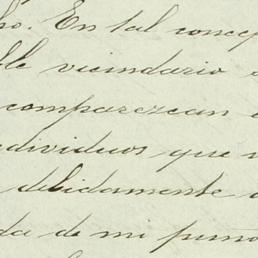 ho. En tal concep
ble vicindario
comparezcan
dividuos que
debidamente
da de mi puño